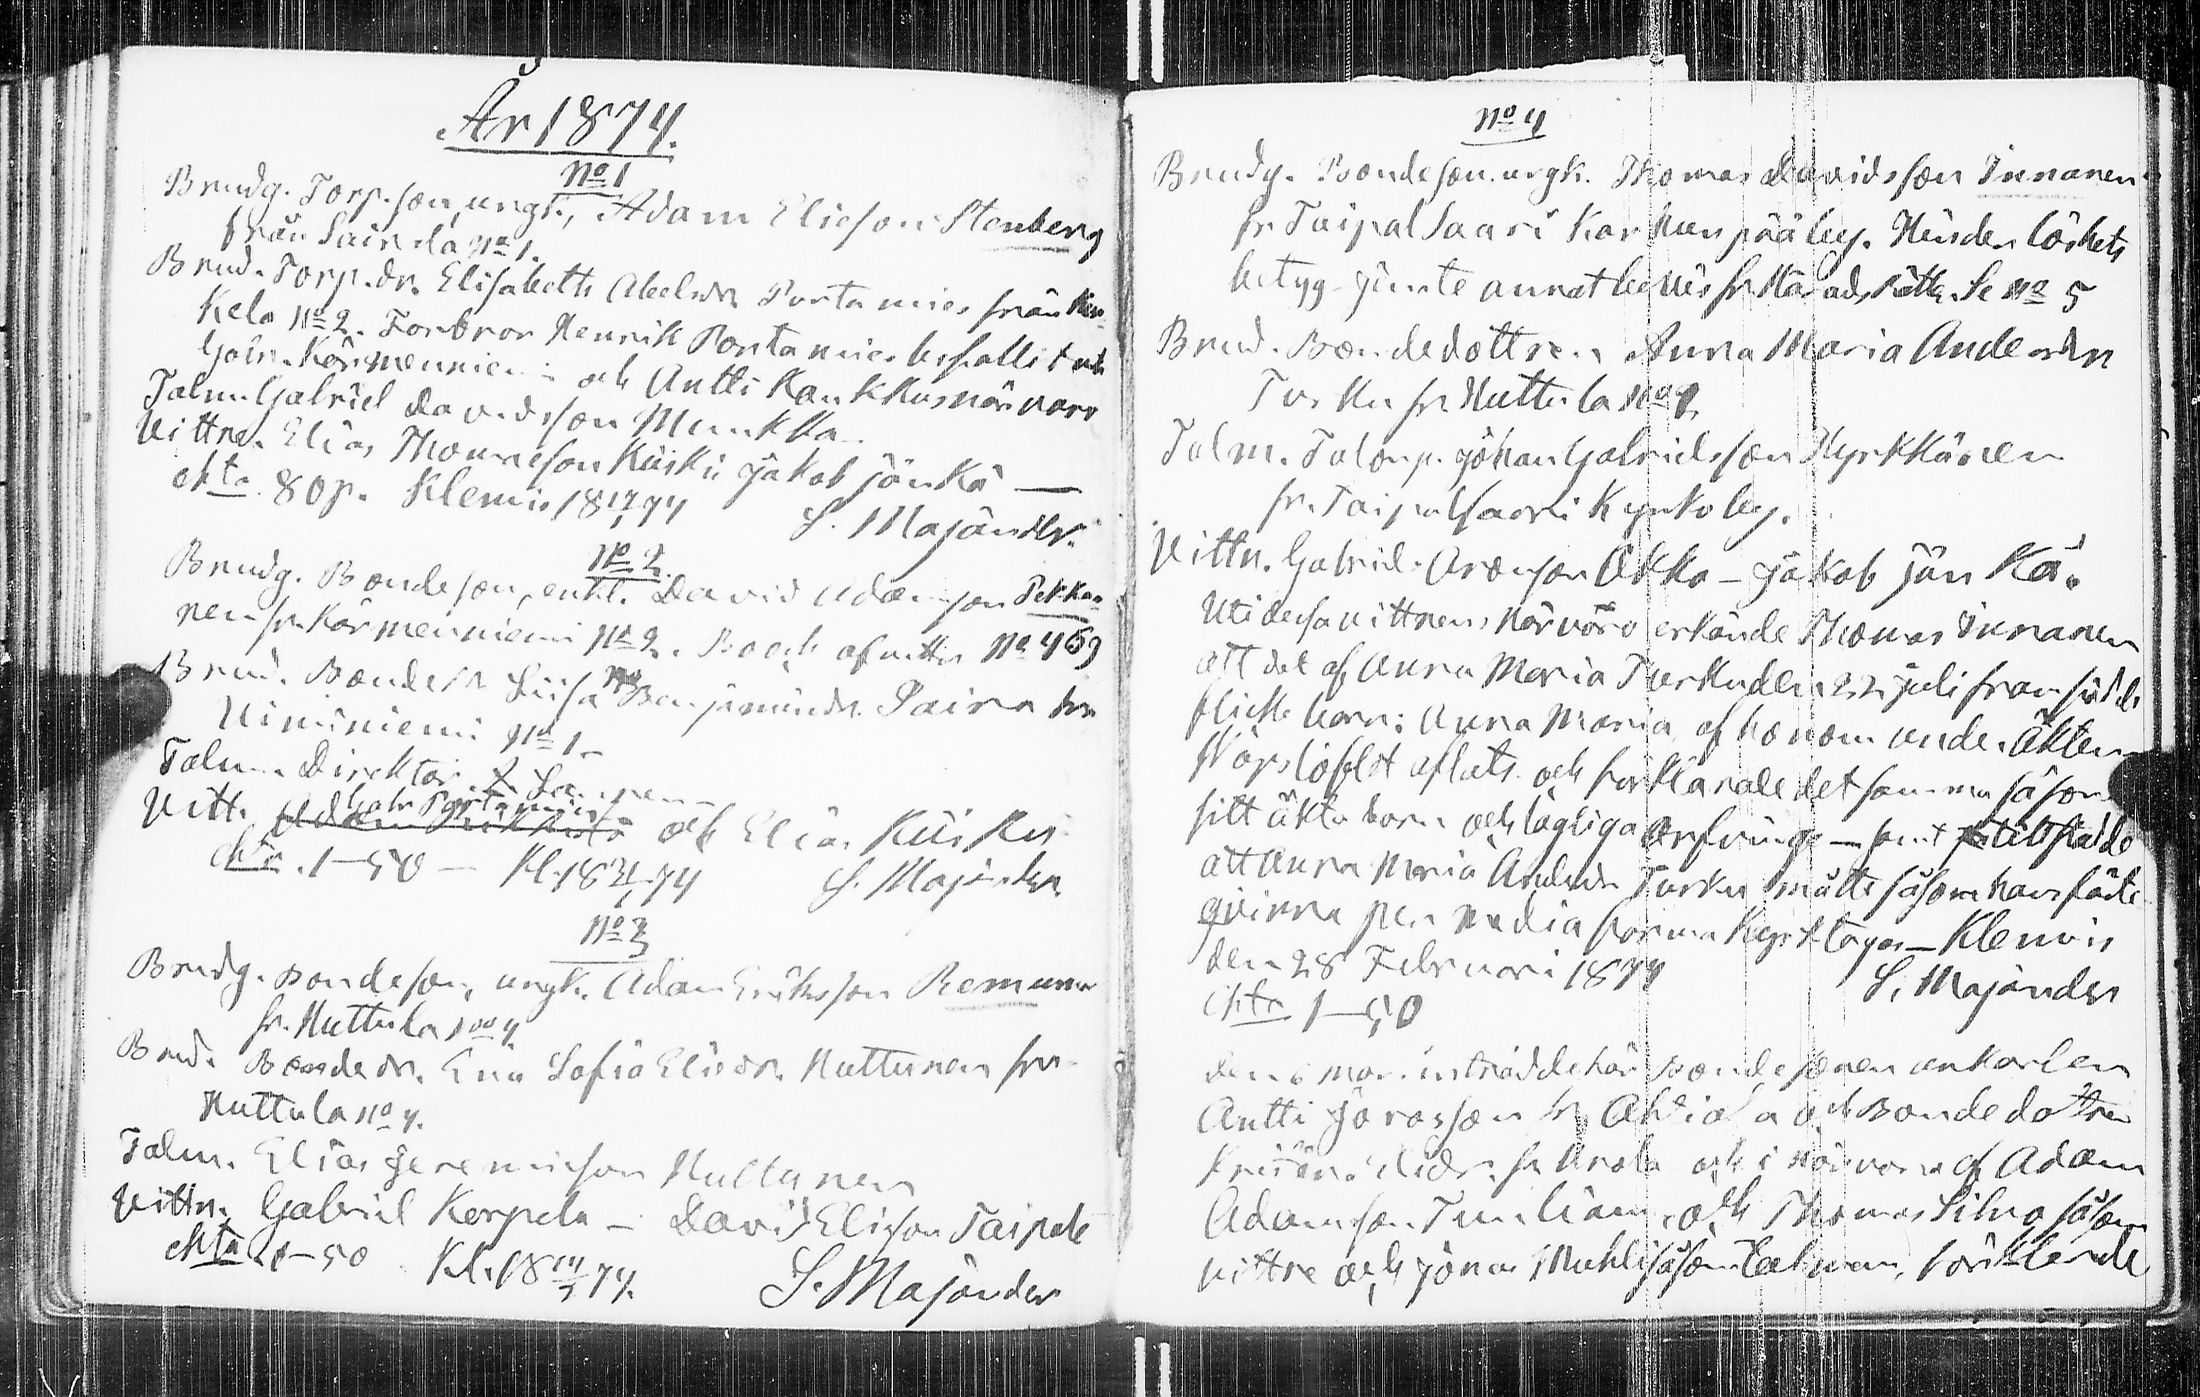 År 1874.
No 1
Brudg. Torp.son, ungk., Adam Elieson Stenberg
från Sairala No 1.
Brud. Torp.dr. Elisabeth Abelsdr. Portamies från Ken-
kela No 2. Farbror Henrik Portamies
och Antti Kaukkus närvaro
Talm. Gabriel Davidsson Munkka.
Vittne. Elias Thomasson Kiiski Jakob Jänkä —
Chta. 80 p. Klemis 18 17/1 74 S. Majander.
No 2
Brudg. Bondeson, enkl. David Adamson Pekka-
nen fr. Kärmenniemi No 2. No 469
Brud. Bondedr. Liisa Benjaminsdr. Saira fr.
Niminiemi No 1.
Talm. Direktör
Vitt. Gabr. Portamies och Elias Kiiski
Chta. 1–50 — Kl. 18 31/1 74 S. Majander.
No 3
Brudg. Bondeson, ungk. Adam Eriksson Remunen
fr. Huttula No 4.
Brud. Bondedr. Eva Sofia Eliedr. Huttunen fr.
Huttula No 4.
Talm. Elias Jeremieson Huttunen
Vittn. Gabriel Korpela — David Elieson Taipale
Chta 1–50 Kl. 18 74. S. Majander
No 4
Brudg. Bondeson. ungk. Thomas Davidsson Innanen
fr. Taipalsaari Karhunpää by. Hinderlöshets
betyg jemte annat bevis fr. Häradsrätt. Se No 5
Brud. Bondedottren Anna Maria Andersdr.
Turku fr. Huttula No
Talm. Talonp. Johan Gabrielsson Kyrkkänen
fr. Taipalsaari Kyrkoby.
Vittn. Gabriel Aronson Akka — Jakob Jänkä.
Uti dessa vittnens närvaro erkände Thomas Innanen
att det af Anna Maria Turku den 22 juli framfödda
flicke barn: Anna Maria af honom under äkten-
skapslöfte aflats och förklarade det samma såsom
sitt äkta barn och lagliga arfvinge — samt tillstadde
att Anna Maria Andersdr. Turku måtte såsom barnsäde
qvinna per media forma kyrktagas — Klemis
den 28 Februari 1874 S. Majander
Chta 1–50
Den mars inträdde här bondesonen enkarlen
Antti Joransson fr. Ahtiala och Bondedottren
fr. Urola och i närvaro af Adam
Adamson Tuuliainen och Thomas Silvo såsom
vittne och Jonas Muhli såsom talman, förklarade